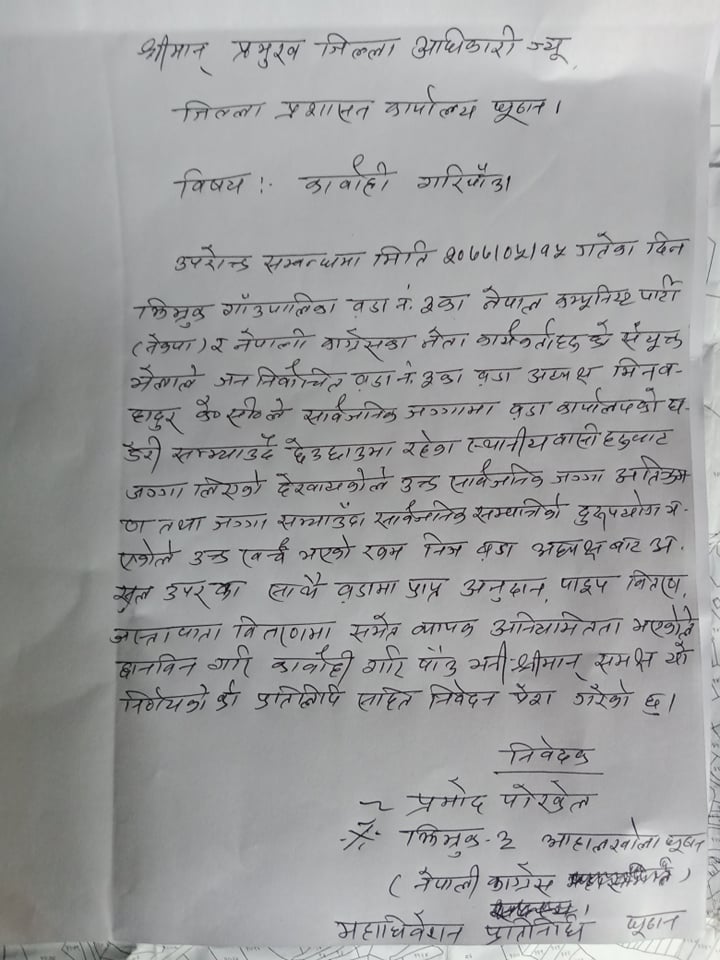 श्रीमान् प्रमुख जिल्ला अधिकारी ज्यू,
जिल्ला प्रशासन कार्यालय प्यूठान।
विषय :- कार्वाही गरिपाँउ।
उपरोक्त सम्बन्धमा मिति २०७७/०५/१५ गतेका दिन
झिमरुक गाँउपालिका वडा नं. २का नेपाल कम्युनिष्ट पार्टी
(नेकपा) र नेपाली काग्रेसका नेता कार्यकर्ताहरुको संयुक्त
भेलाले जन निर्वाचित वडा नं. २का वडा अध्यक्ष मिनब-
हादुर के॰सी॰ले सार्वजनिक जग्गामा वडा कार्यालयको घ-
डेरी सम्म्याउदै छेउछाउमा रहेका स्थानीयवासीहरुबाट
जग्गा लिएको देखाएकोले उक्त सार्वजनिक जग्गा अतिक्रम
ण तथा जग्गा सम्माउँदा सार्वजनिक सम्पत्तिको दुरुपयोग भ-
एकोले उक्त खर्च भएको रकम निज वडा अध्यक्ष बाट अ-
सुल उपर का साथै वडामा प्राप्त अनुदान, पाइप वितरण,
जस्तापाता वितरणमा समेत व्यापक अनियमितता भएकोले
छानविन गरि कार्वाही गरि पाँउ भनी श्रीमान् समक्ष यो
निर्णयको प्रतिलिपि सहित निवेदन पेश गरेको छु।
निवेदक
प्रमोद पोखेल
झिमरुक-२ आहालखोला प्यूठान
(नेपाली काग्रेस )
महाधिवेशन प्रतिनिधि प्यूठान